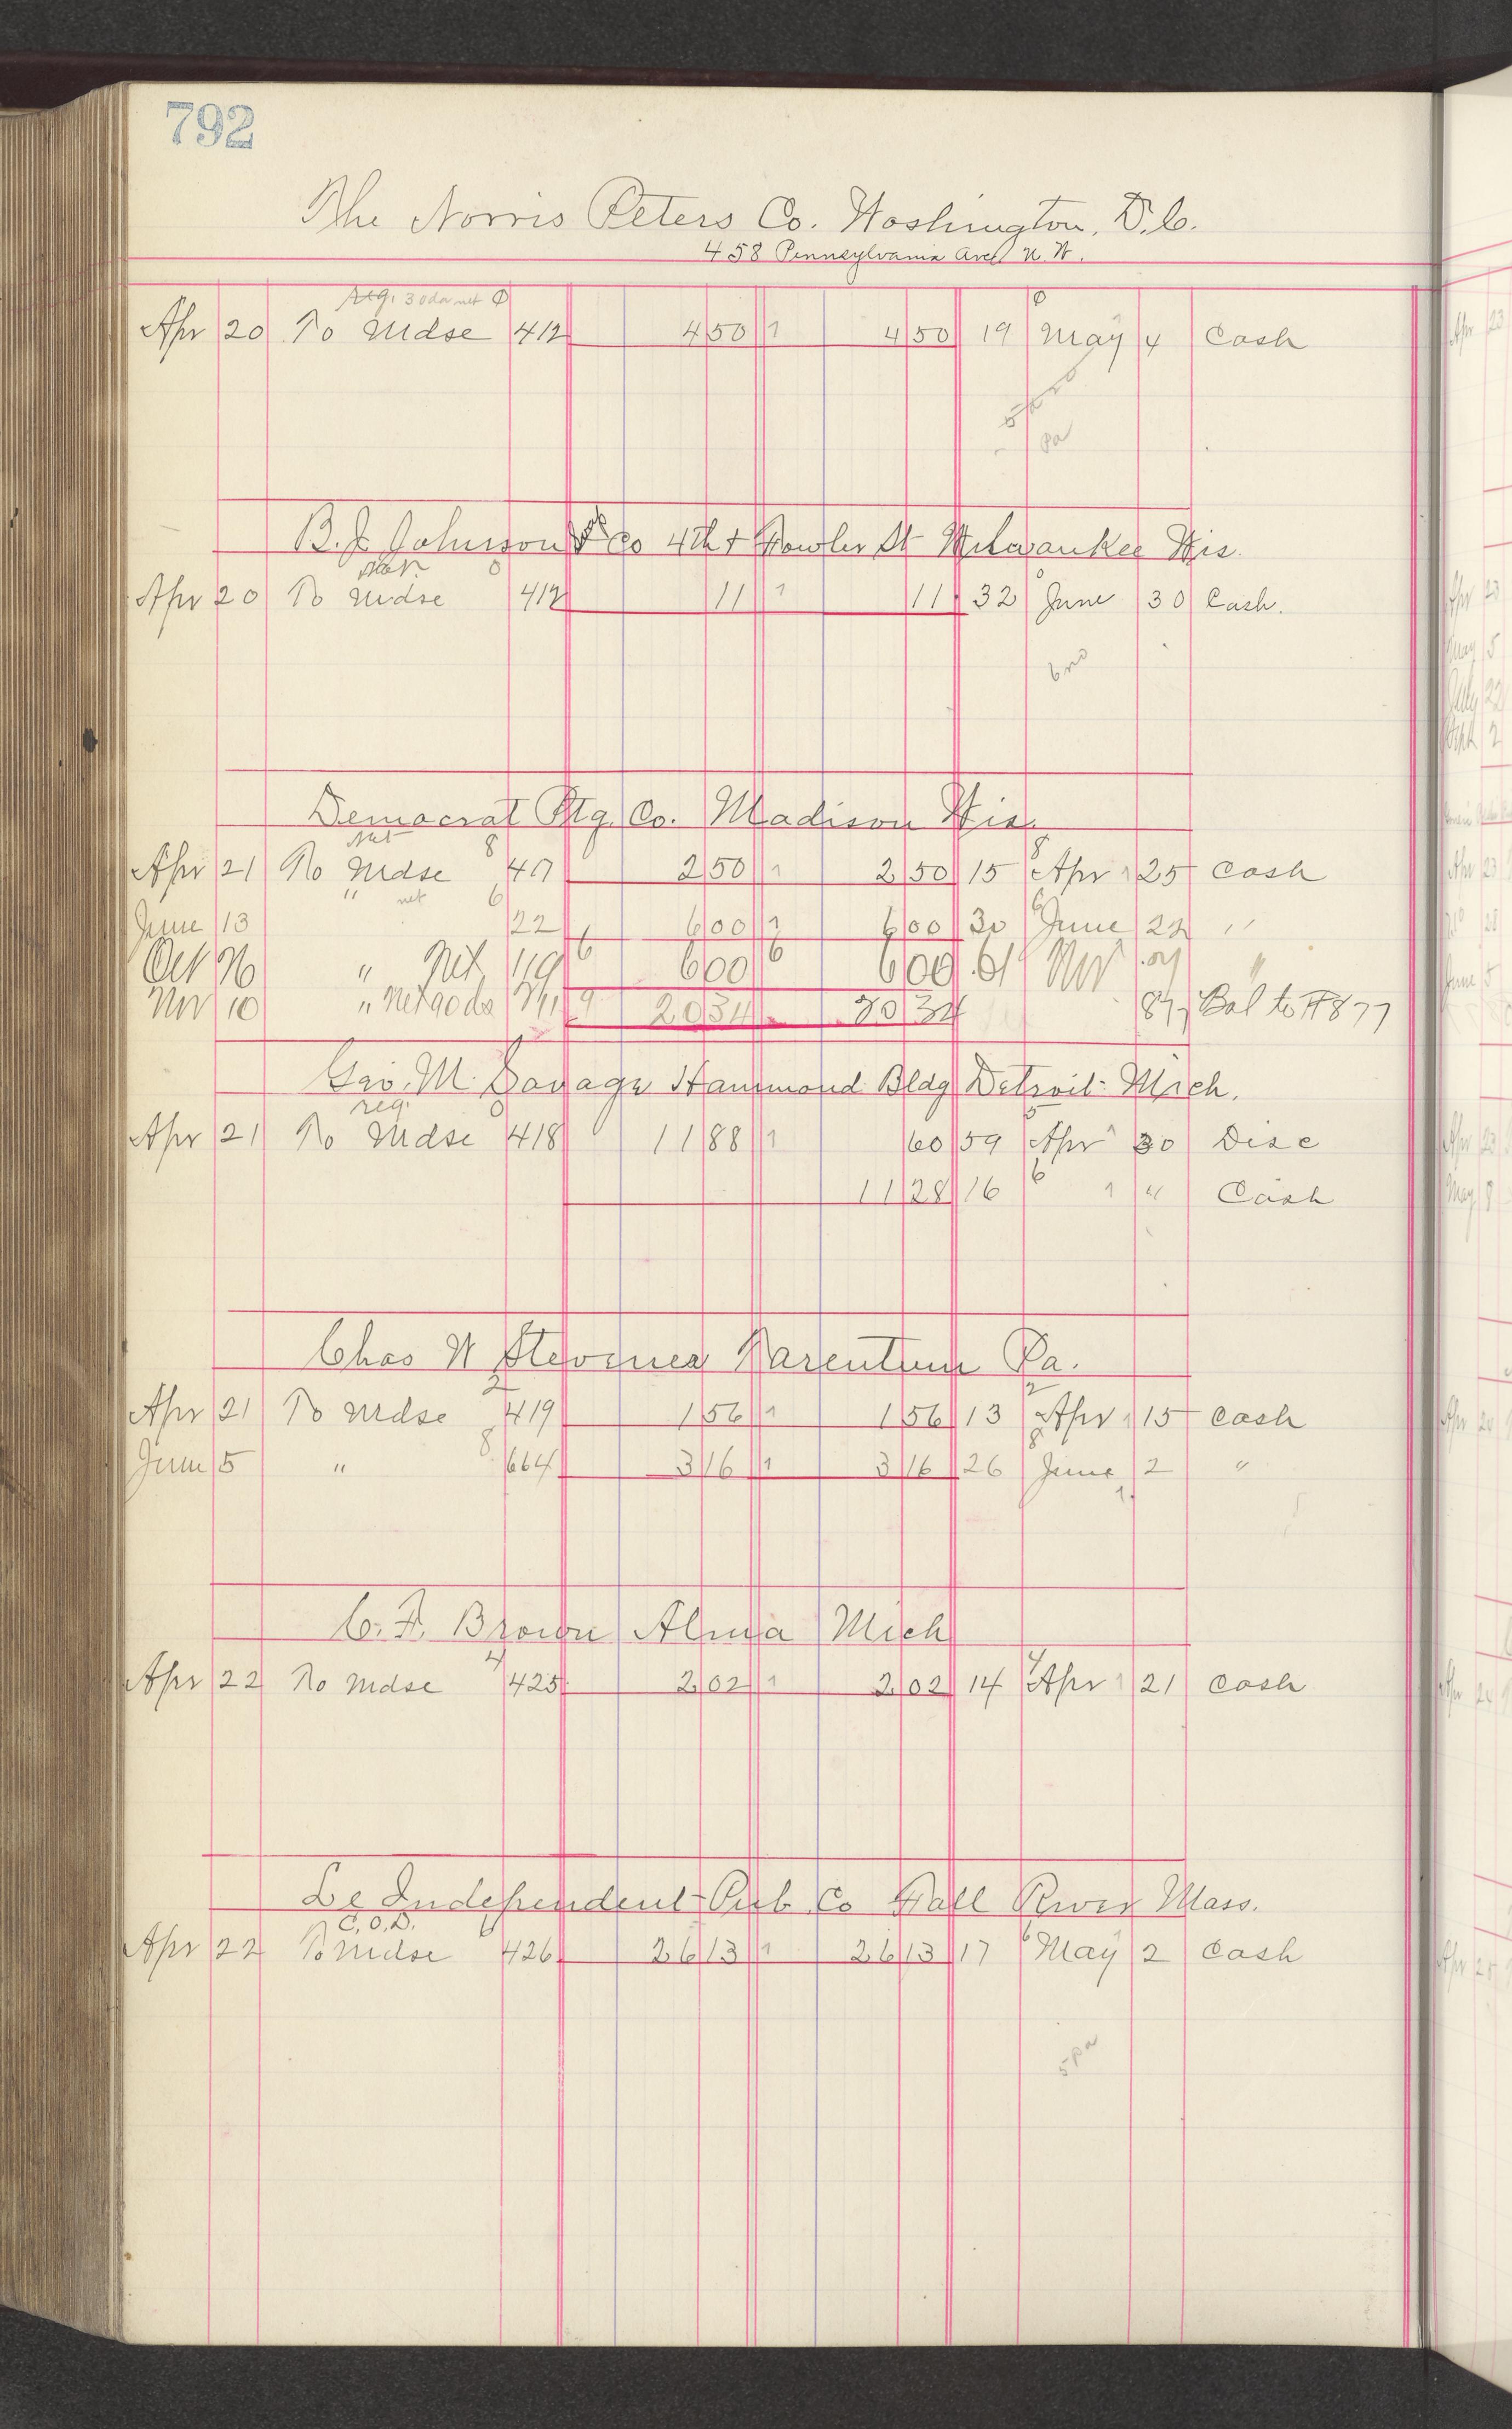 792
The Norris Peters Co. Washington, D.C.
458 Pennsylvania Ave N.W.
reg. 30 da net 0 0
Apr 20 To Mdse 412 4 50 1 4 50 19 May 4 Cash
B.J. Johnson & Co 4th & Fowler St Milwaukee Wis.
0 0
Apr 20 To Mdse 412 11 1 11 32 June 30 Cash.
Democrat Ptg. Co. Madison Wis.
Net 8 8
Apr 21 To Mdse 417 2 50 1 2 50 15 Apr 25 Cash
" net 6 6
June 13 22 6 00 1 6 00 30 June 22 "
Oct 26 " Net 119 6 6 00 6 6 00 61 Nov "
Nov 10 " Net 90 da 9 20 34 20 34 877 Bal to F 877
Geo. M. Savage Hammond Bldg Detroit Mich.
reg. 0 5
Apr 21 To Mdse 418 11 88 1 60 59 Apr 30 Disc
6
11 28 16 " Cash
Chas W Stevenes Tarentum Pa.
2 2
Apr 21 To Mdse 419 1 56 1 1 56 13 Apr 15 Cash
8 8
June 5 " 664 3 16 1 3 16 26 June 2 "
C. F. Brown Alma Mich
4 4
Apr 22 To Mdse 425 2 02 1 2 02 14 Apr 21 Cash
Le Independent Pub Co Fall River Mass.
C.O.D. 6 6
Apr 22 To Mdse 426 26 13 1 26 13 17 May 2 Cash